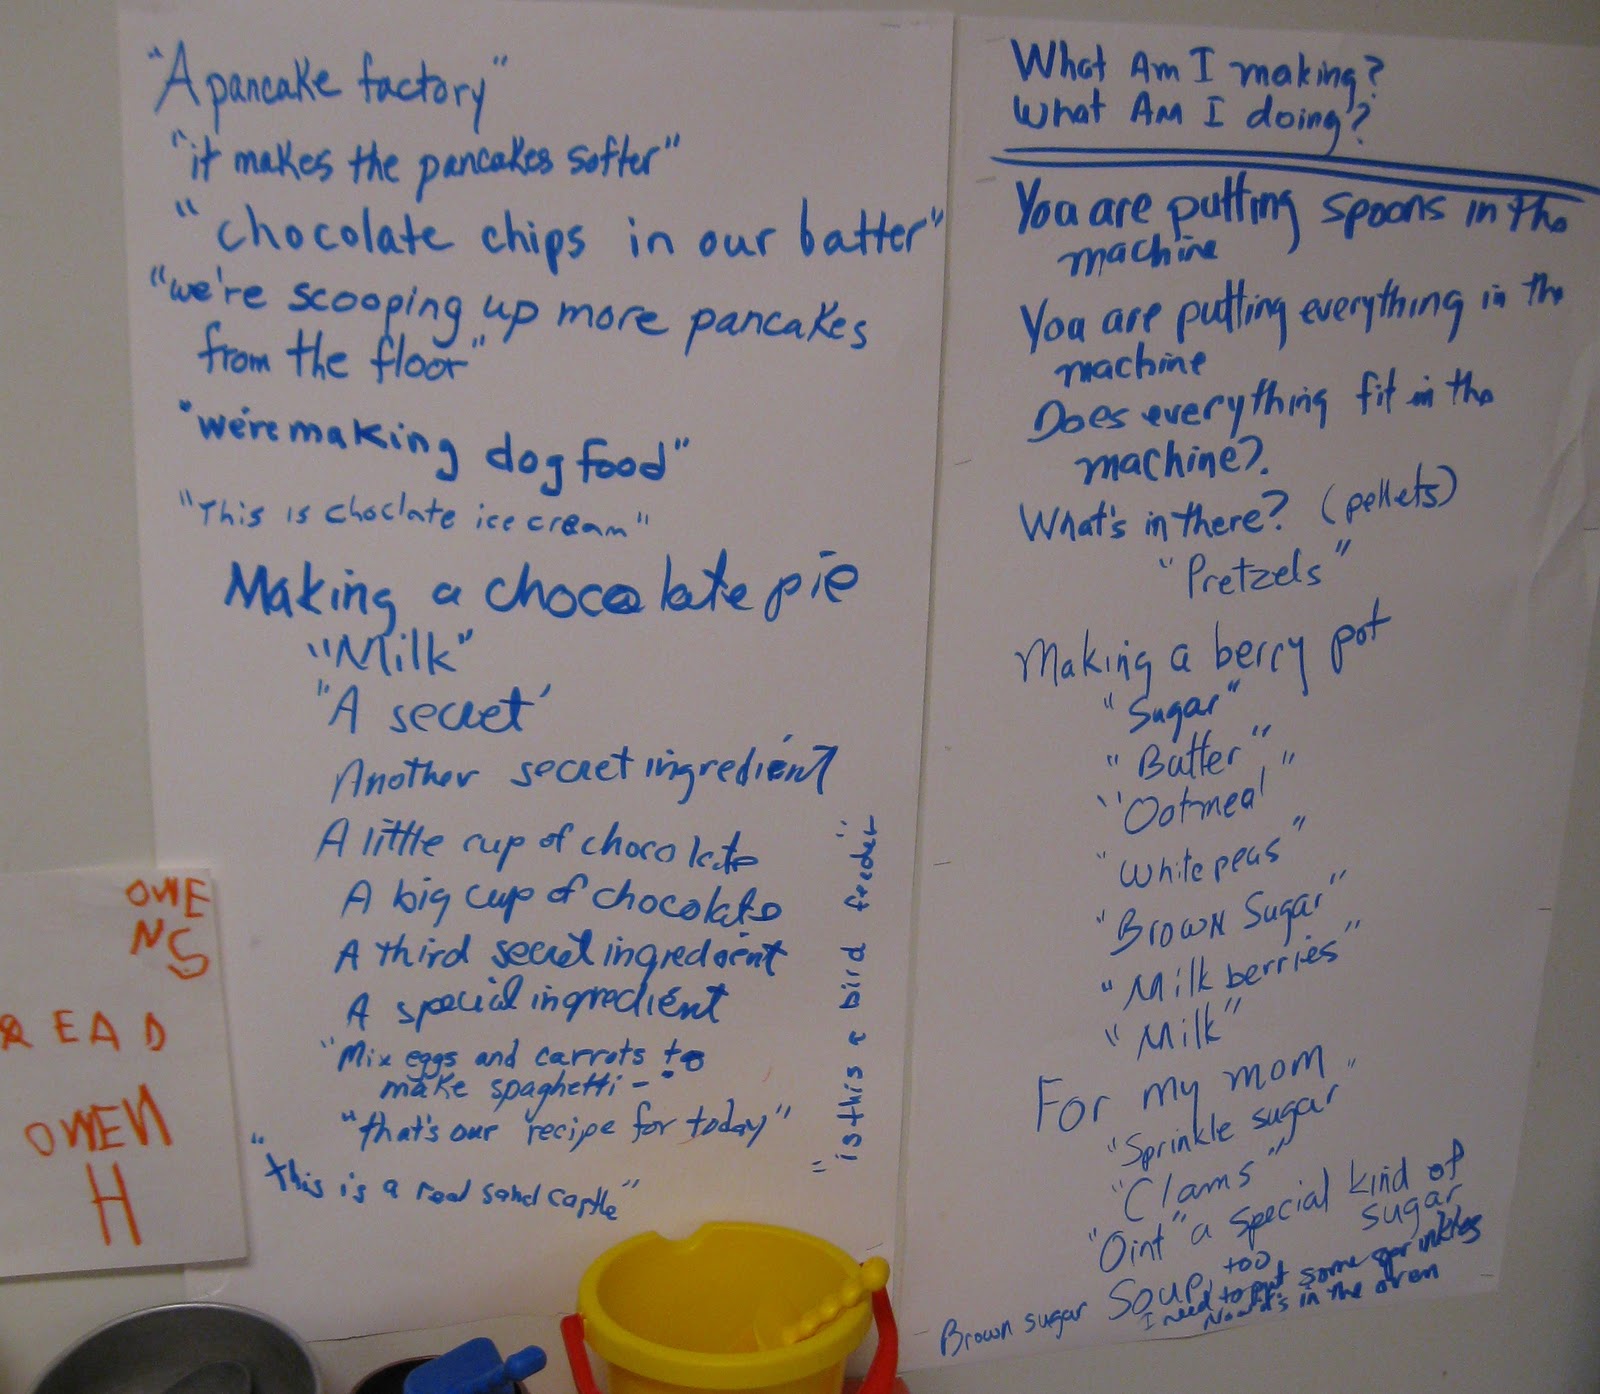 "A pancake factory"
"it makes the pancakes softer"
"chocolate chips in our batter"
"we're scooping up more pancakes
from the floor"
"we're making dog food"
"This is choclate ice cream"
Making a chocolate pie
"Milk"
"A secret'
Another secret ingredient
A little cup of chocolate
A big cup of chocolate
A third secret ingredient
A special ingredient
"Mix eggs and carrots to
make spaghetti -"
"that's our recipe for today"
"this is a real sand castle"
"is this a bird feeder"
What Am I making?
What Am I doing?
You are putting spoons in the
machine
You are putting everything in the
machine
Does everything fit in the
machine?
What's in there? (pellets)
"Pretzels"
Making a berry pot
"Sugar"
"Batter"
"Oatmeal"
"White peas"
"Brown Sugar"
"Milk berries"
"Milk"
For my mom
"Sprinkle sugar"
"Clams"
"Oint" a special kind of
sugar
Brown sugar Soup, too
I need to put some sprinkles
Now it's in the oven
OWE
NS
READ
OWEN
H